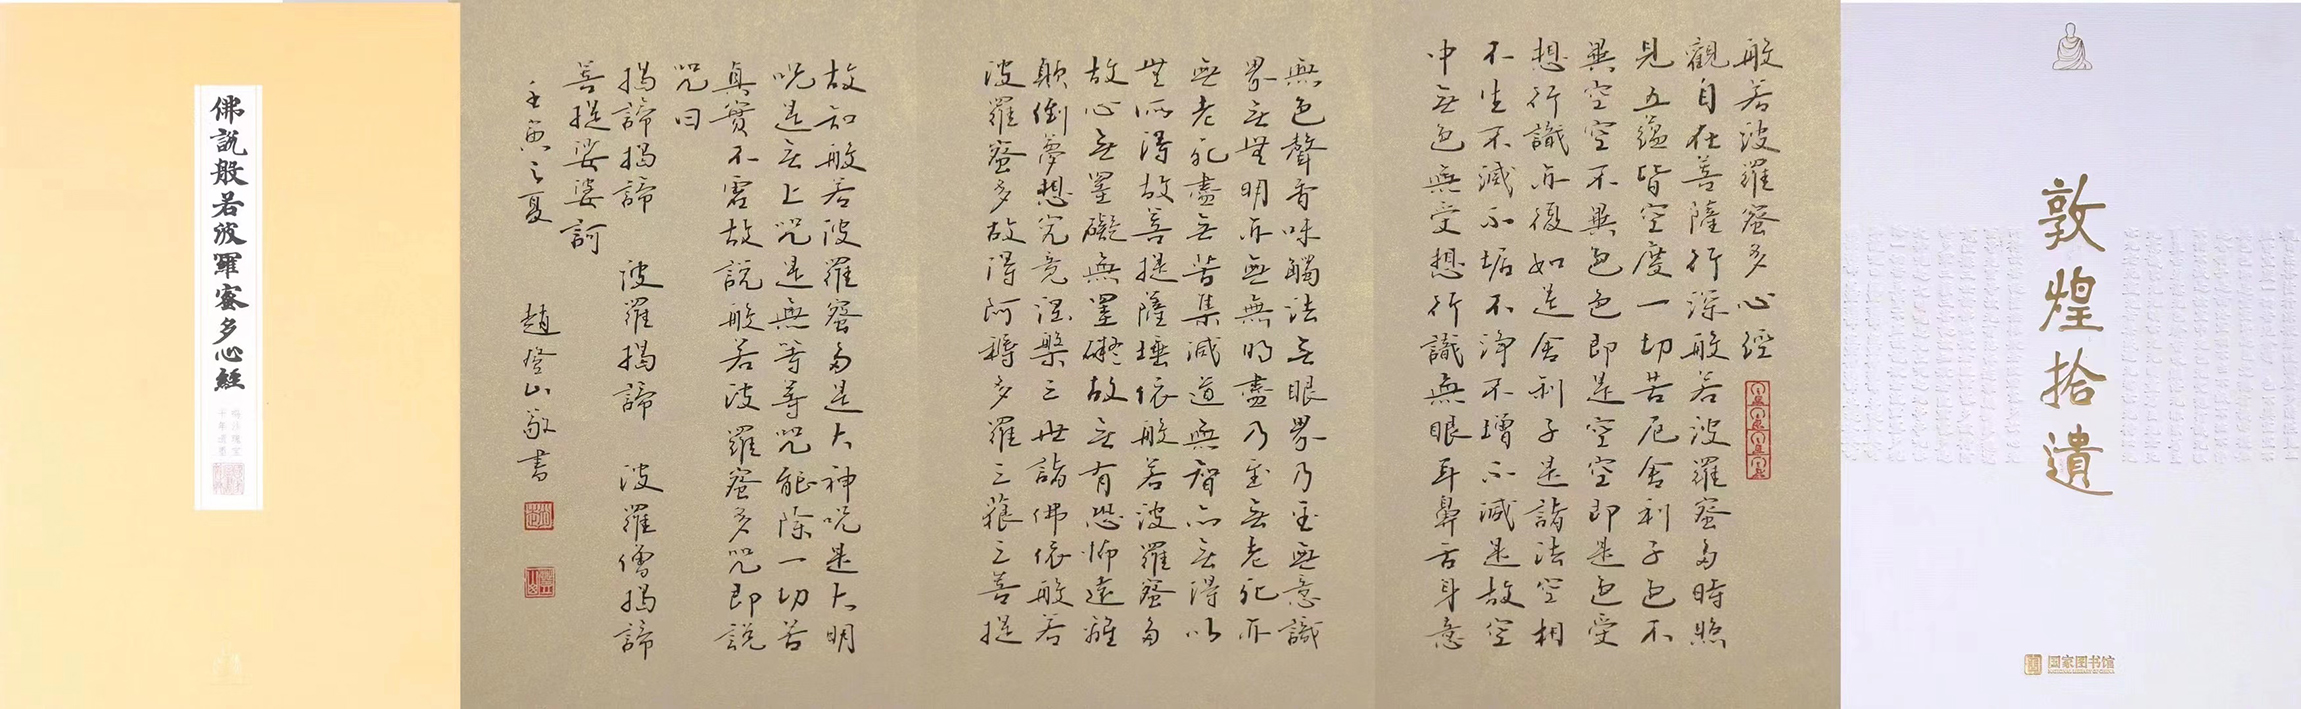 敦煌拾遺
国家图书馆
般若波羅蜜多心經
觀自在菩薩行深般若波羅蜜多時照
見五蘊皆空度一切苦厄舍利子色不
異空空不異色色即是空空即是色受
想行識亦復如是舍利子是諸法空相
不生不滅不垢不淨不增不減是故空
中無色無受想行識無眼耳鼻舌身意
無色聲香味觸法無眼界乃至無意識
界無無明亦無無明盡乃至無老死亦
無老死盡無苦集滅道無智亦無得以
無所得故菩提薩埵依般若波羅蜜多
故心無罣礙無罣礙故無有恐怖遠離
顛倒夢想究竟涅槃三世諸佛依般若
波羅蜜多故得阿耨多羅三藐三菩提
故知般若波羅蜜多是大神咒是大明
咒是無上咒是無等等咒能除一切苦
真實不虛故說般若波羅蜜多咒即說
咒曰
揭諦揭諦 波羅揭諦 波羅僧揭諦
菩提娑婆訶
壬寅之夏 趙登山敬書
佛說般若波羅蜜多心經